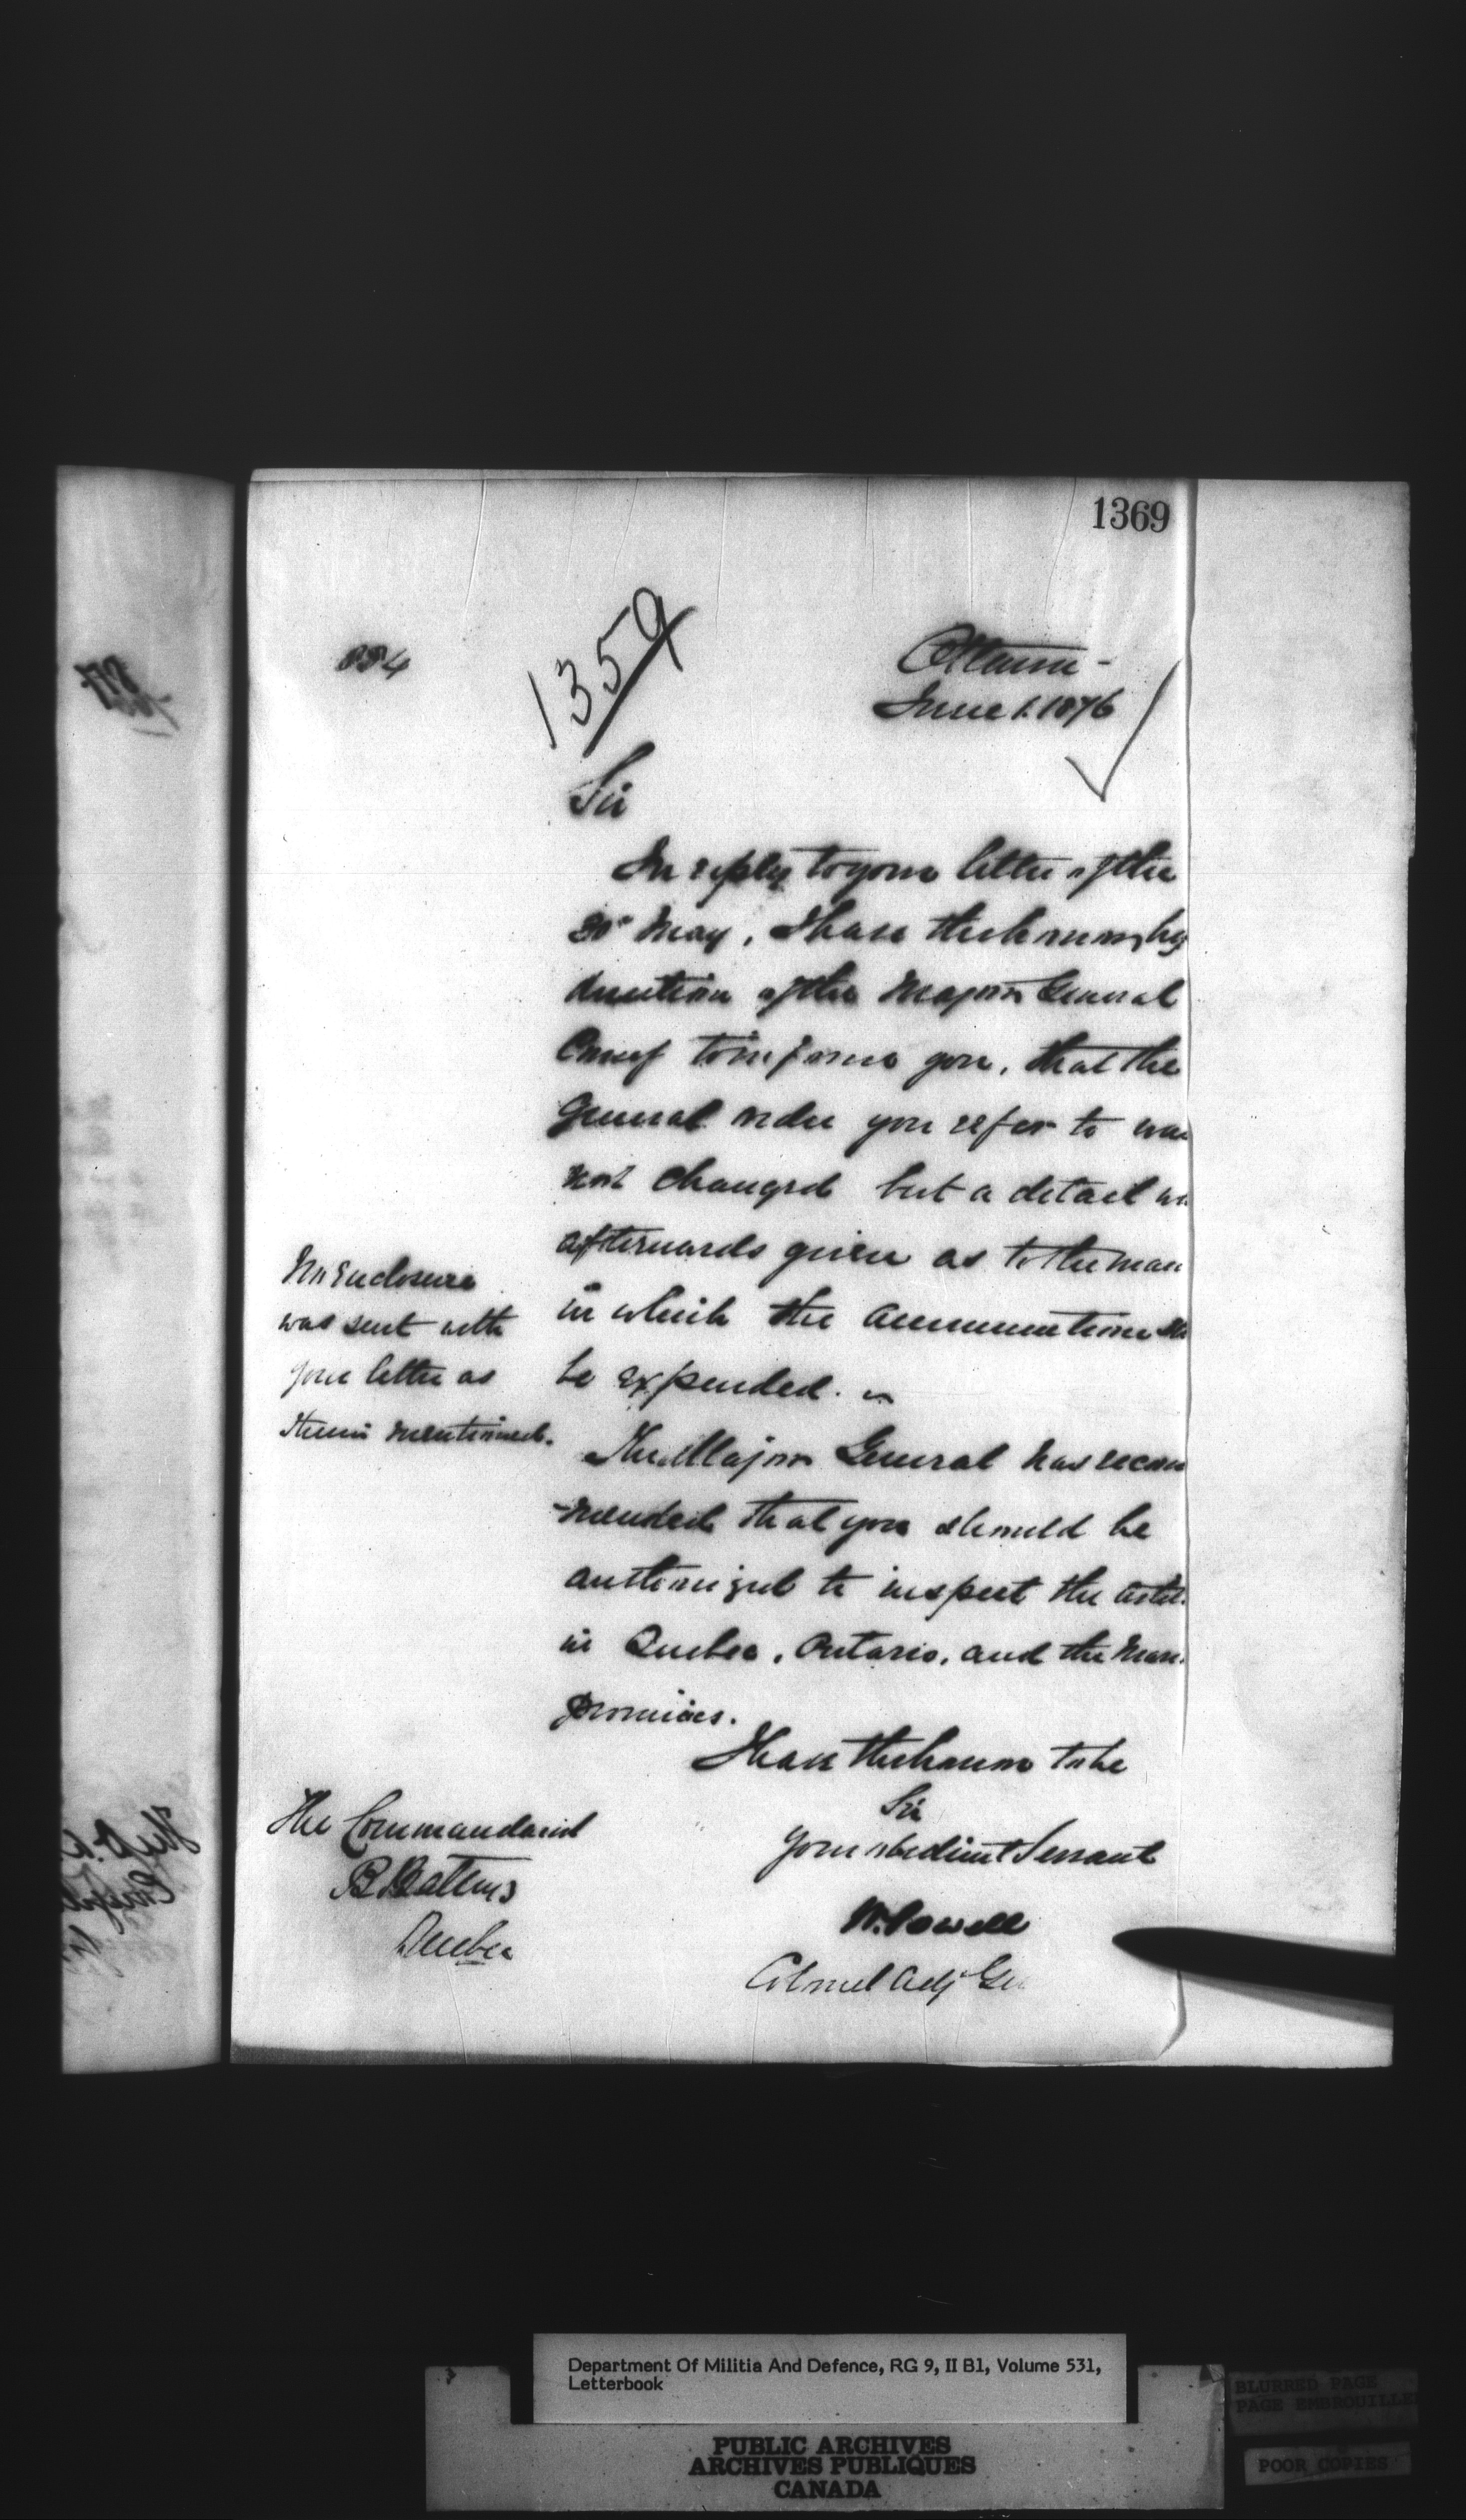 1369
1359
884
Ottawa -
June 1. 1876
Sir
In reply to your letter of the
30th May, I have the honor, by
direction of the Major General
Comg to inform you, that the
General order you refer to was
not changed but a detail wa
afterwards given as to the man
in which the ammunition sh
be expended.
No Enclosure
was sent with
your letter as
therein mentioned.
The Major General has recom
-mended that you should be
authorized to inspect the Artil.
in Quebec, Ontario, and the Mari.
provinces.
I have the honor to be
Sir
Your obedient Servant
W. Powell
Colonel Adj Ge
The Commandant
B Battery
Quebec
Department Of Militia And Defence, RG 9, II B1, Volume 531,
Letterbook
PUBLIC ARCHIVES
ARCHIVES PUBLIQUES
CANADA
BLURRED PAGE
PAGE EMBROUILLEE
POOR COPIES